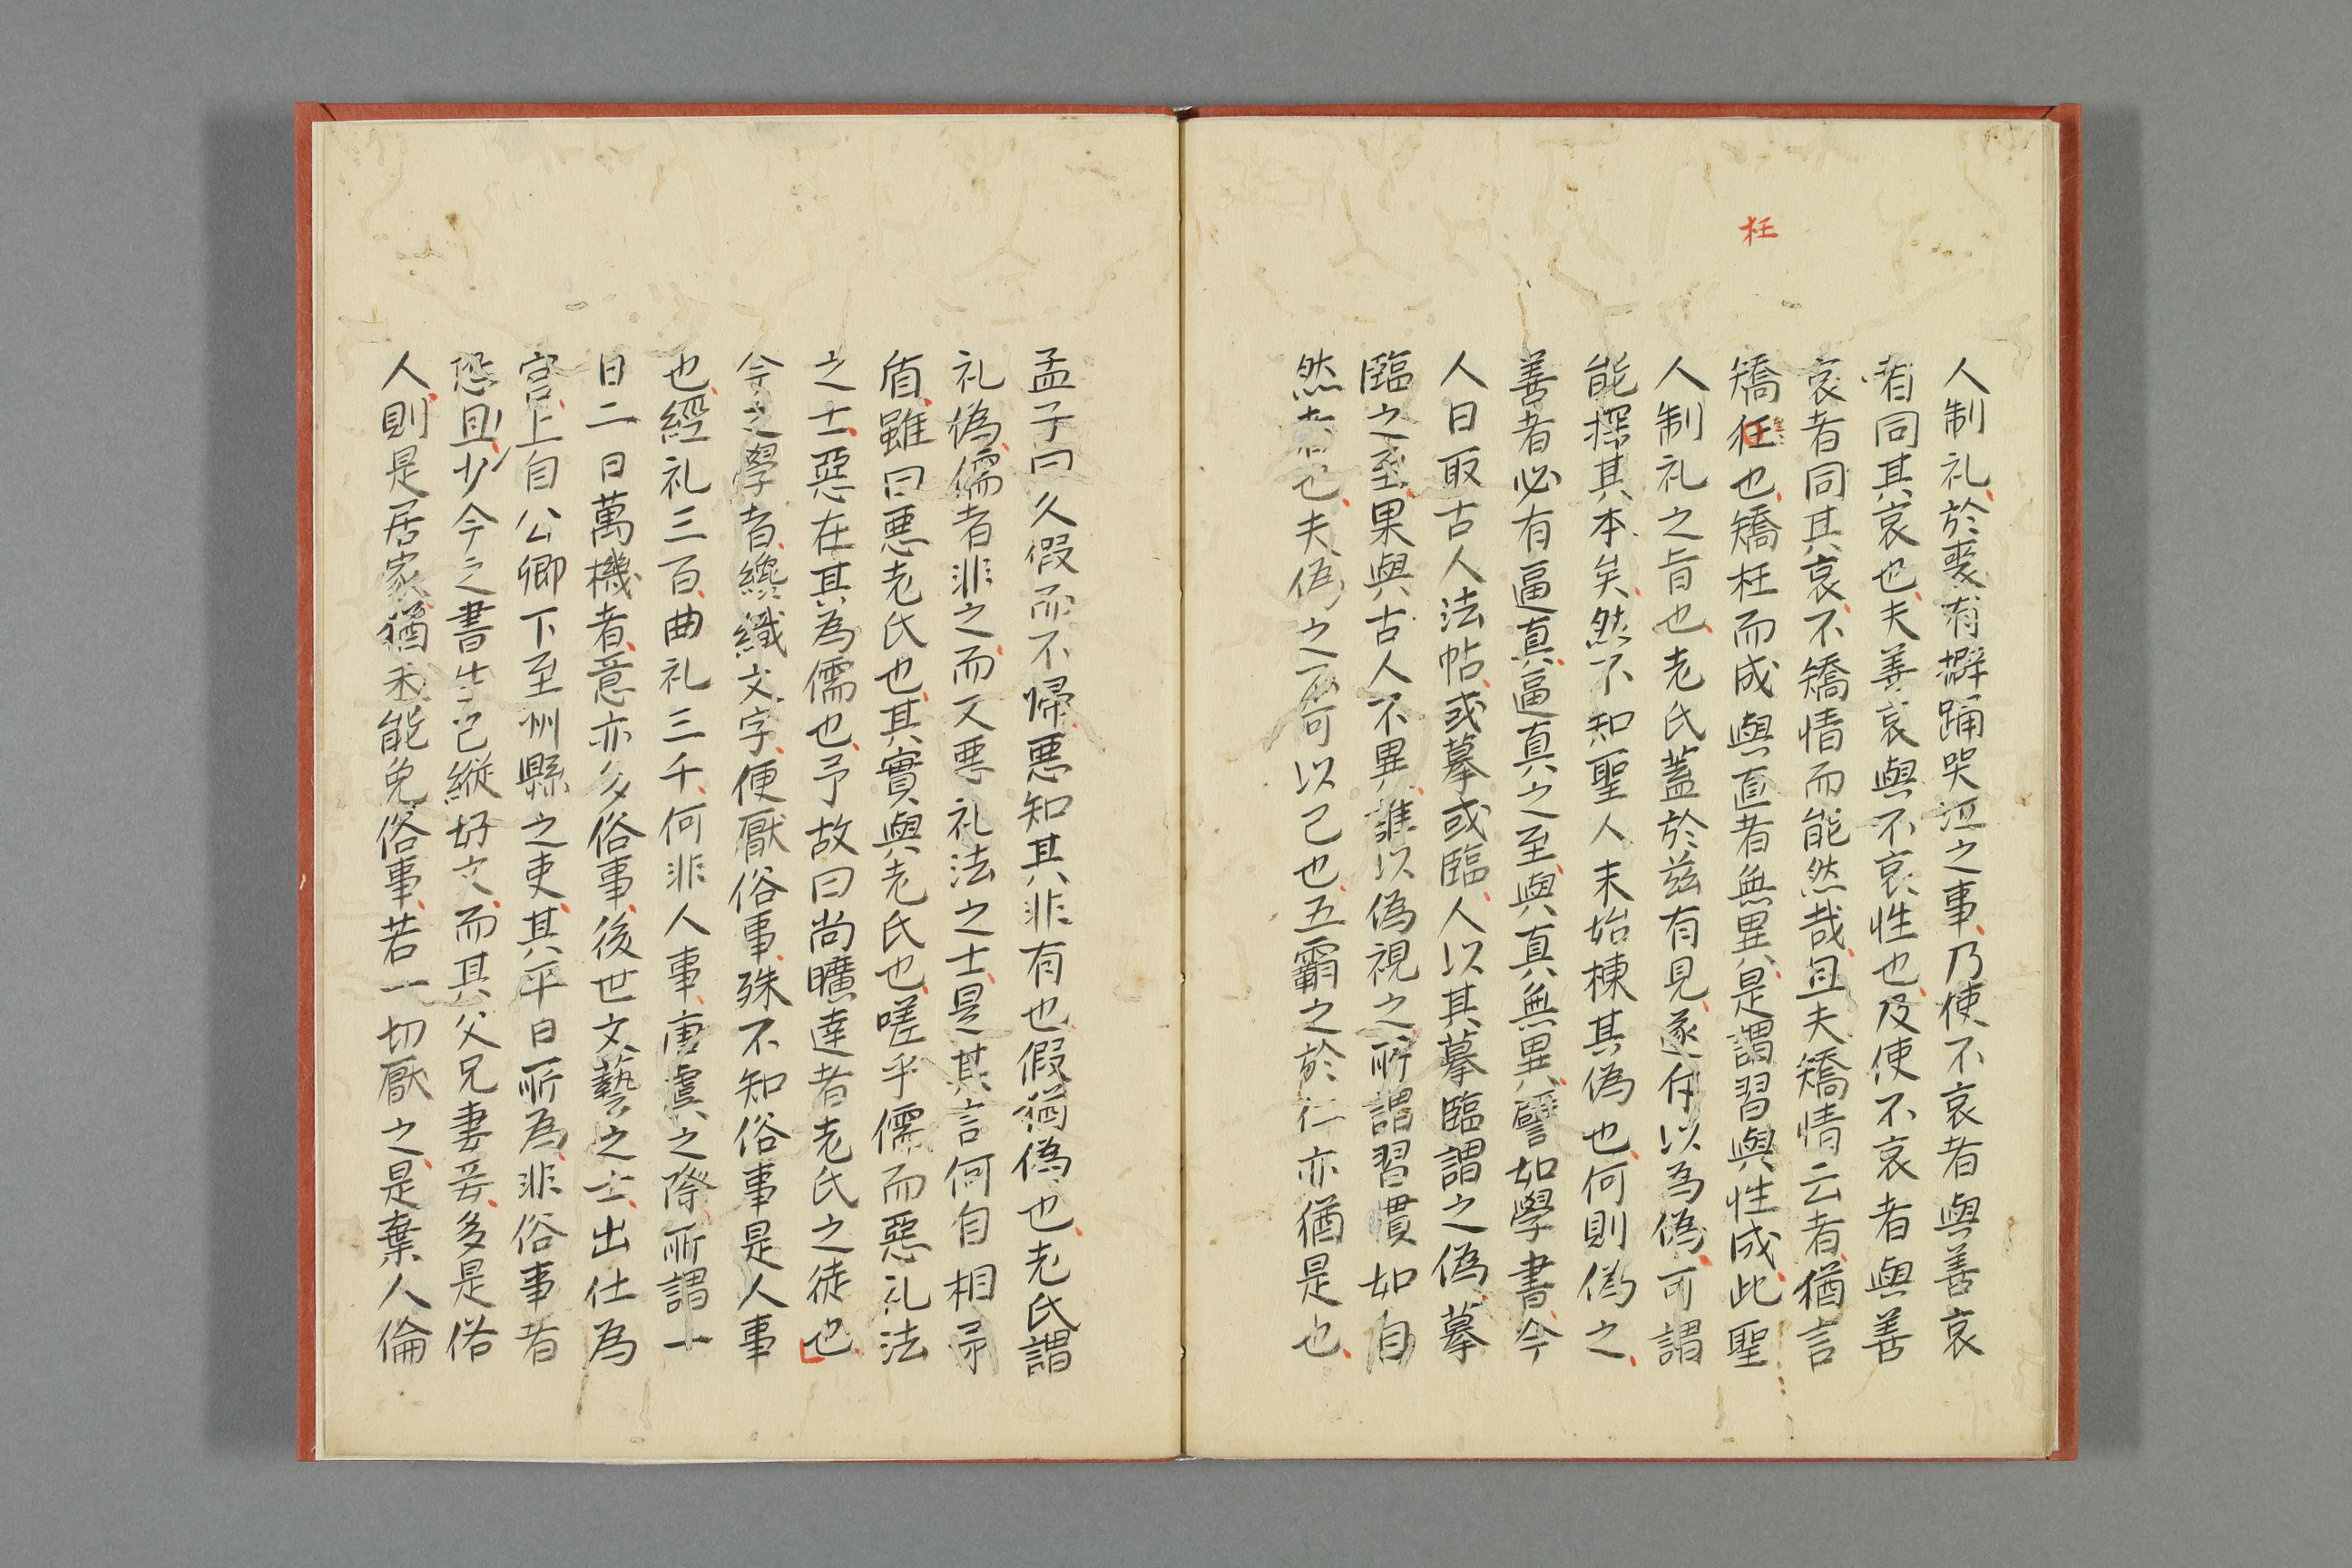 枉
人制礼於喪有擗踊哭泣之事乃使不哀者與善哀
者同其哀也夫善哀與不哀性也及使不哀者與善
哀者同其哀不矯情而能然哉且夫矯情云者猶言
矯枉也矯枉而成與直者無異是謂習與性成此聖
人制礼之旨也老氏蓋於茲有見遂斥以為偽可謂
能探其本矣然不知聖人未始棟其偽也何則偽之
善者必有逼真逼真之至與真無異譬如學書今
人日取古人法帖或摹或臨人以其摹臨謂之偽摹
臨之至果與古人不異誰以偽視之所謂習慣如自
然者也夫偽之不可以已也五霸之於仁亦猶是也
孟子曰久假而不帰悪知其非有也假猶偽也老氏謂
礼偽儒者非之而又悪礼法之士是其言何自相矛
盾雖曰悪老氏也其實與老氏也嗟乎儒而惡礼法
之士惡在其為儒也予故曰尚曠達者老氏之徒也
今之學者纔識文字便厭俗事殊不知俗事是人事
也經礼三百曲礼三千何非人事唐虞之際所謂一
日二日萬機者意亦多俗事後世文藝之士出仕為
官上自公卿下至州縣之吏其平日所為非俗事者
恐且少今之書生己縦好文而其父兄妻妾多是俗
人則是居家猶未能免俗事若一切厭之是棄人倫